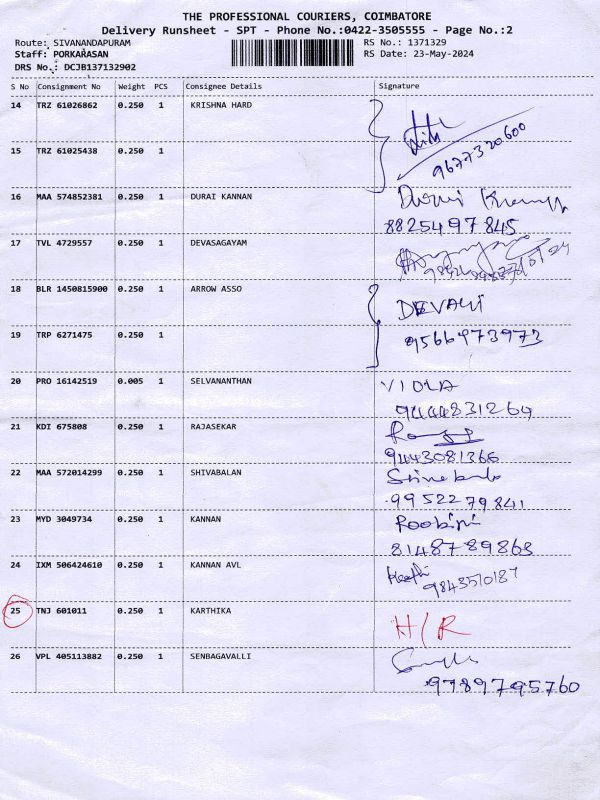 THE PROFESSIONAL COURIERS, COIMBATORE
Delivery Runsheet - SPT - Phone No.:0422-3505555 - Page No.:2
Route: SIVANANDAPURAM RS No.: 1371329
Staff: PORKARASAN RS Date: 23-May-2024
DRS No.: DCJB137132902
S No Consignment No Weight PCS Consignee Details Signature
14 TRZ 61026862 0.250 1 KRISHNA HARD
9677320600
15 TRZ 61025438 0.250 1
16 MAA 574852381 0.250 1 DURAI KANNAN Durai
8825497845
17 TVL 4729557 0.250 1 DEVASAGAYAM
18 BLR 1450815900 0.250 1 ARROW ASSO DEVAKI
19 TRP 6271475 0.250 1 9566973973
20 PRO 16142519 0.005 1 SELVANANTHAN VIOLA
9444831264
21 KDI 675808 0.250 1 RAJASEKAR
9443081366
22 MAA 572014299 0.250 1 SHIVABALAN
9952279841
23 MYD 3049734 0.250 1 KANNAN Roobini
8148789863
24 IXM 506424610 0.250 1 KANNAN AVL
9843510187
25 TNJ 601011 0.250 1 KARTHIKA H/R
26 VPL 405113882 0.250 1 SENBAGAVALLI
9789795760